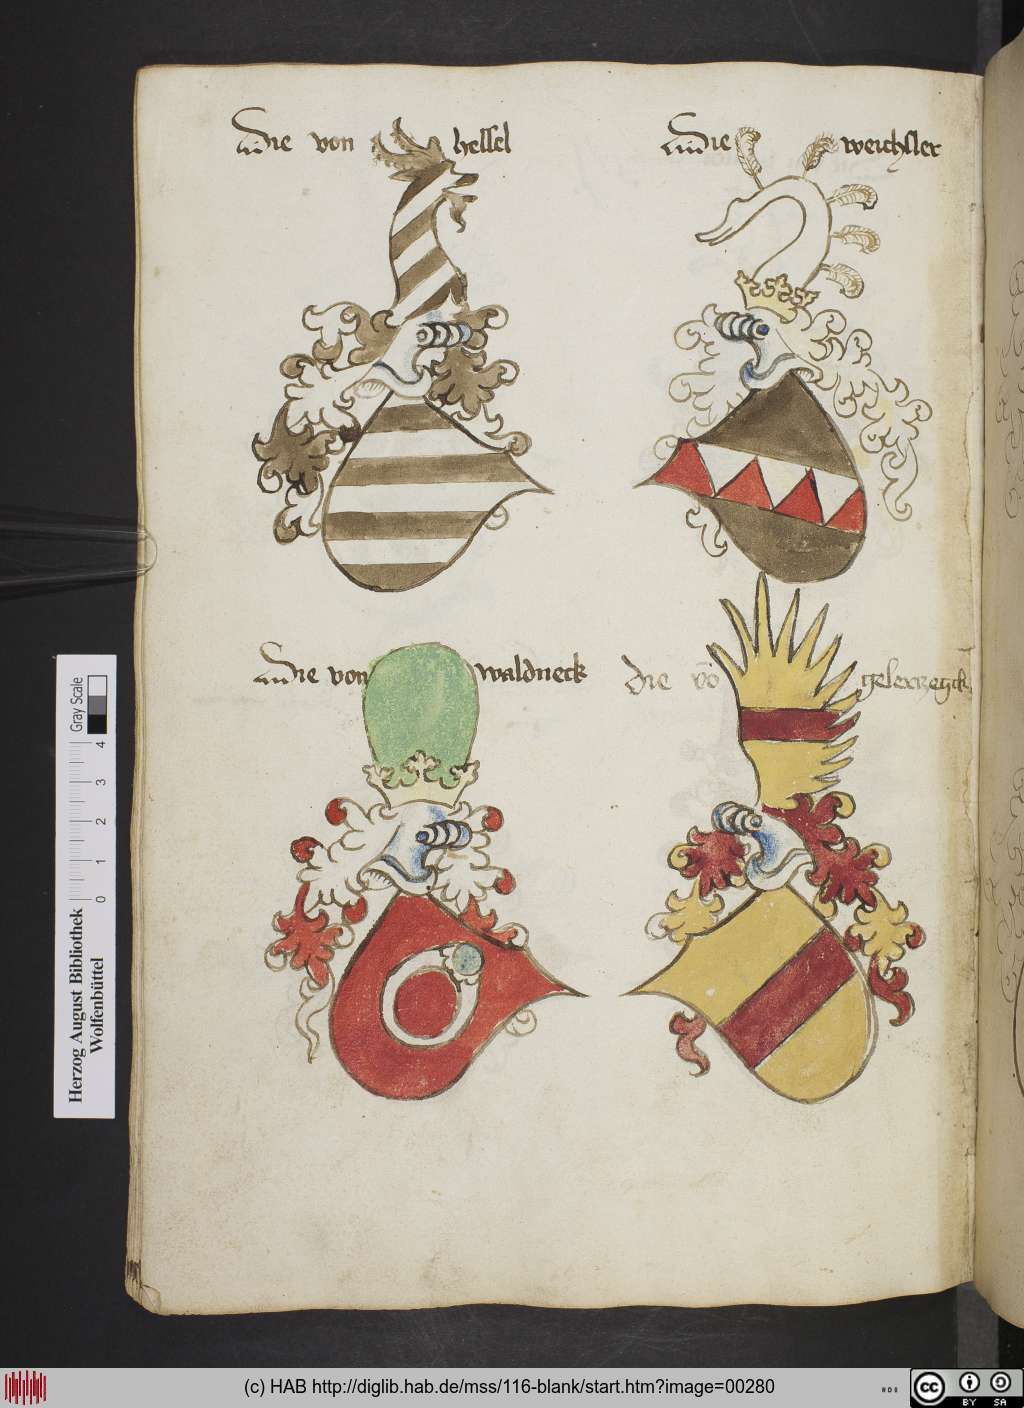 Die von hessel
Die weichsler
Die von waldneck
die vo
Gray Scale
0 1 2 3 4
Herzog August Bibliothek
Wolfenbüttel
(c) HAB http://diglib.hab.de/mss/116-blank/start.htm?image=00280
cc BY SA